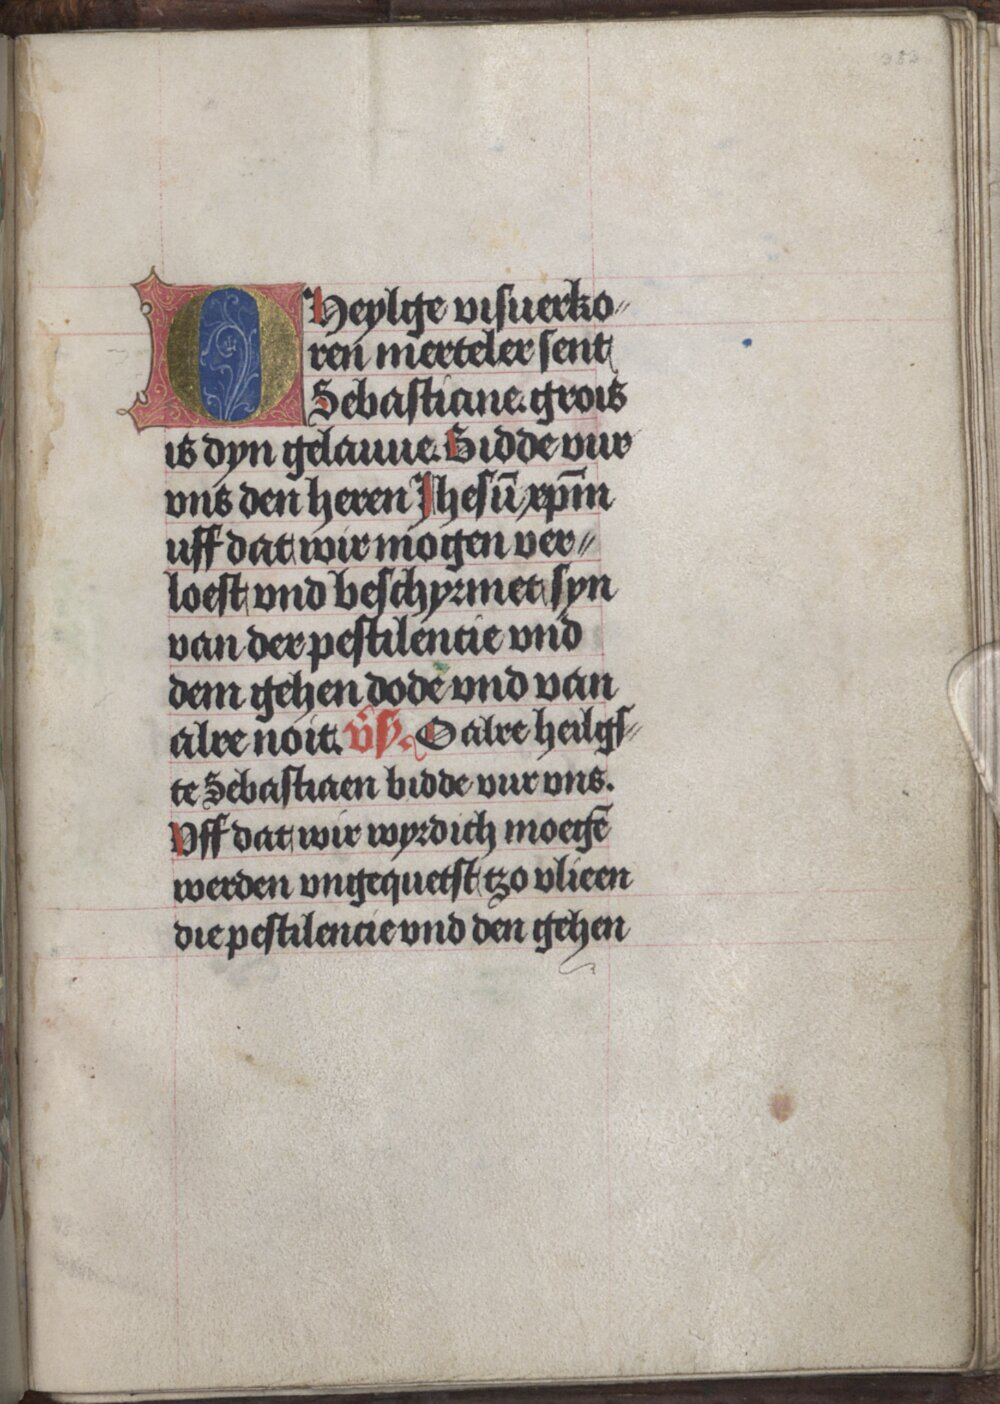 383
O Heylge vısuerko⸗
ren merteler sent
Sebastiane. grois
is dyn gelauue. Bidde vur
vns den heren Jhesū xp̄m
uff dat wir mogen ver⸗
loest vnd beschyrmet syn
van der pestilencie vnd
dem gehen dode vnd van
alre noit. v̄s̄. O alre heilgs⸗
te Sebastiaen bidde vur vns.
Vff dat wir wyrdich moegē
werden vngequetst tzo vlieen
die pestilencie vnd den gehen